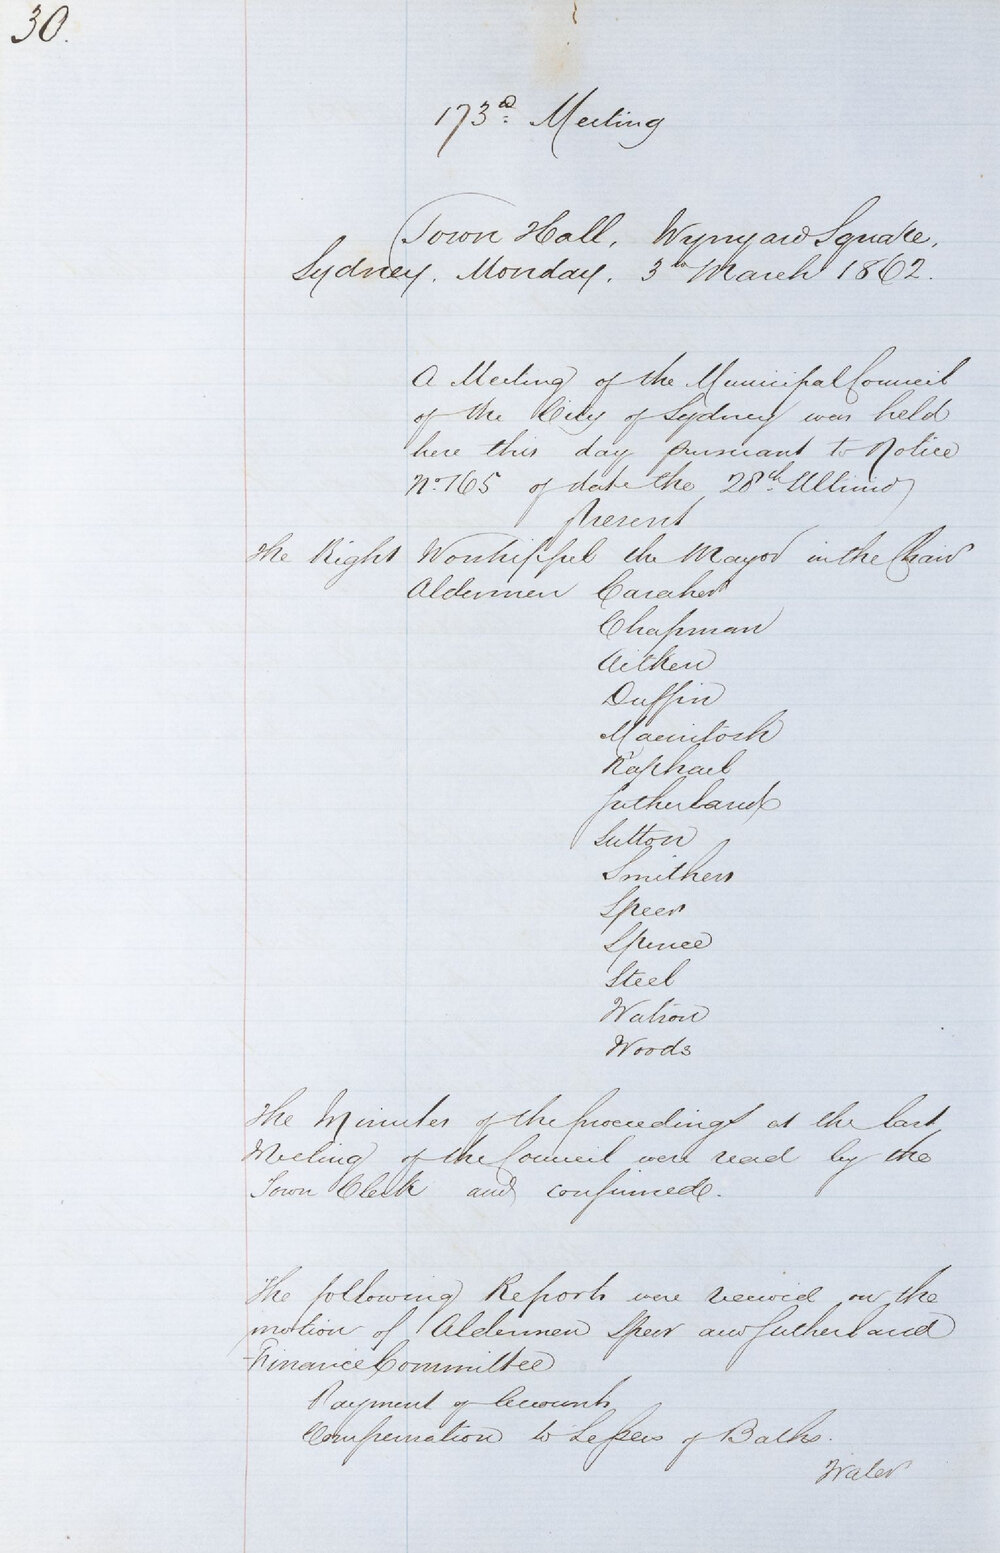 30.
173d Meeting
Town Hall, Wynyard Square,
Sydney, Monday, 3d March 1862.
A Meeting of the Municipal Council
of the City of Sydney was held
here this day pursuant to Notice
No. 165 of date the 28th Ultimo
Present
The Right Worshipful the Mayor in the Chair
Aldermen Caraher
Chapman
Aitken
Duffin
Macintosh
Raphael
Sutherland
Sutton
Smithers
Speer
Spence
Steel
Watson
Woods
The Minutes of the proceedings at the last
Meeting of the Council were read by the
Town Clerk and confirmed.
The following Reports were received on the
motion of Aldermen Speer and Sutherland
Finance Committee
Payment of Accounts
Compensation to Lessees of Baths.
Water